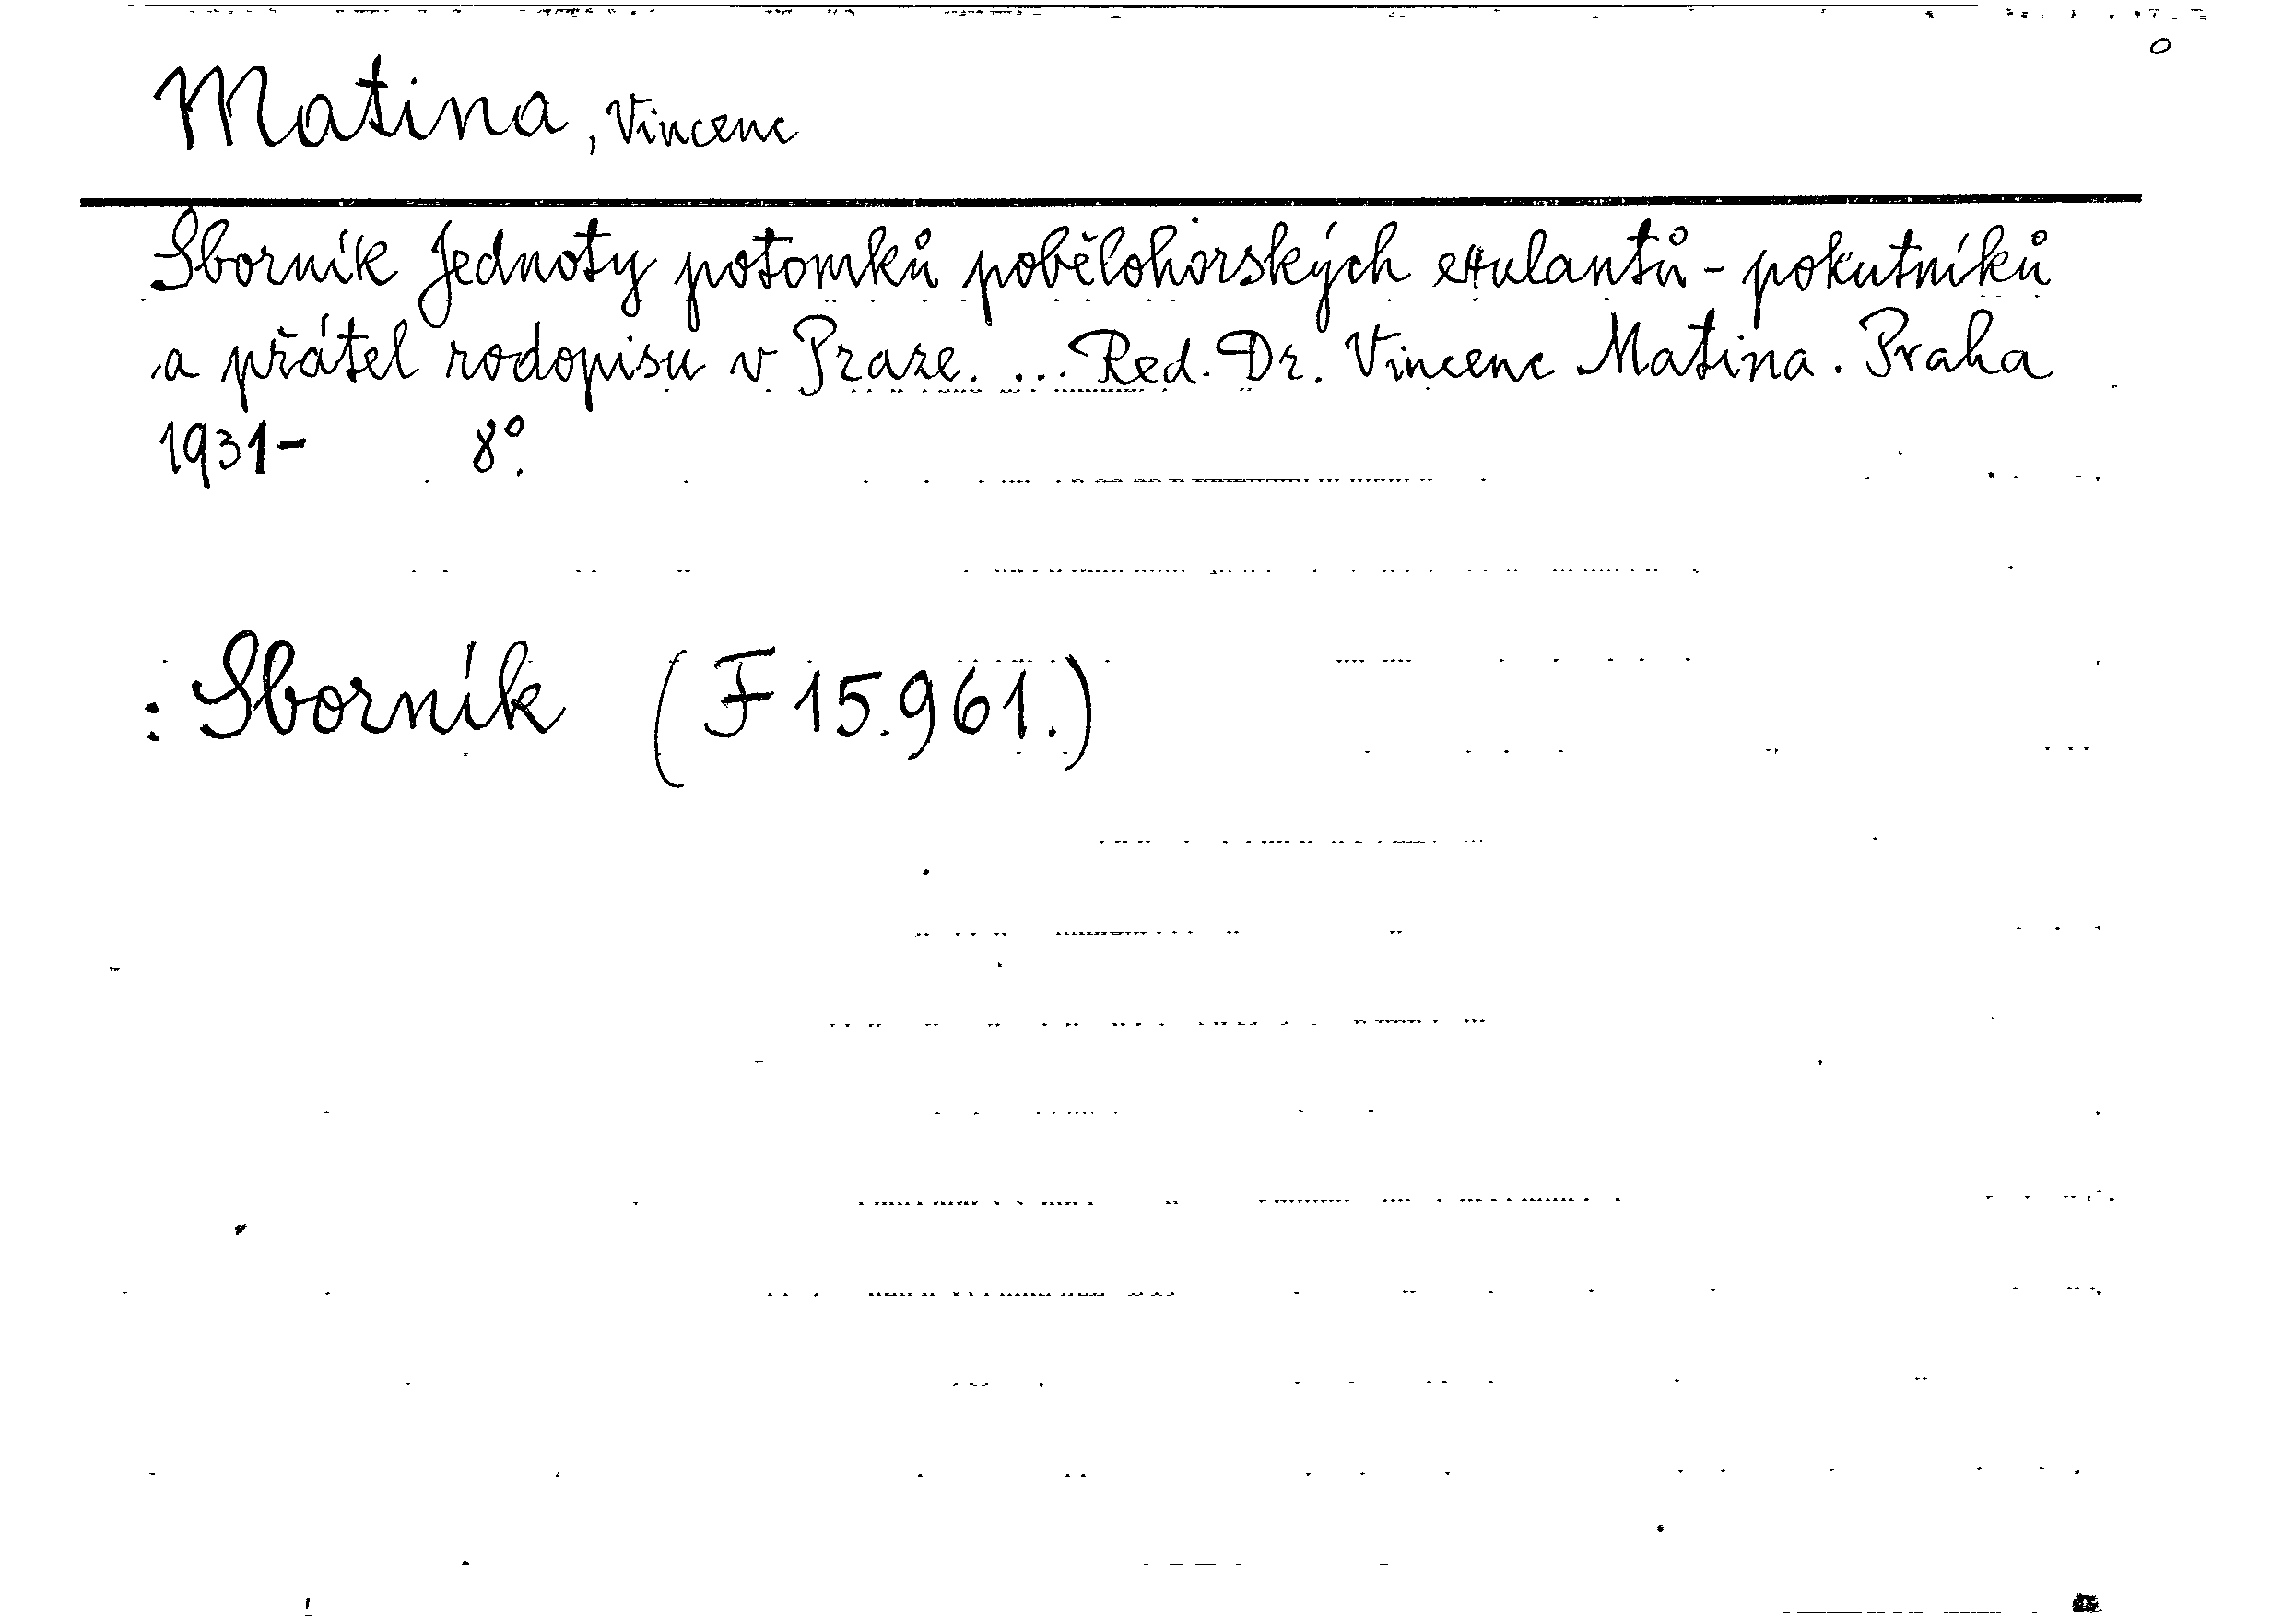 Matina, Vincenc
Sborník Jednoty potomků pobělohorských exulantů - pokutníků
a přátel rodopisu v Praze. ... Red. Dr. Vincenc Matina. Praha
1931- 8°.
: Sborník (F 15.961.)